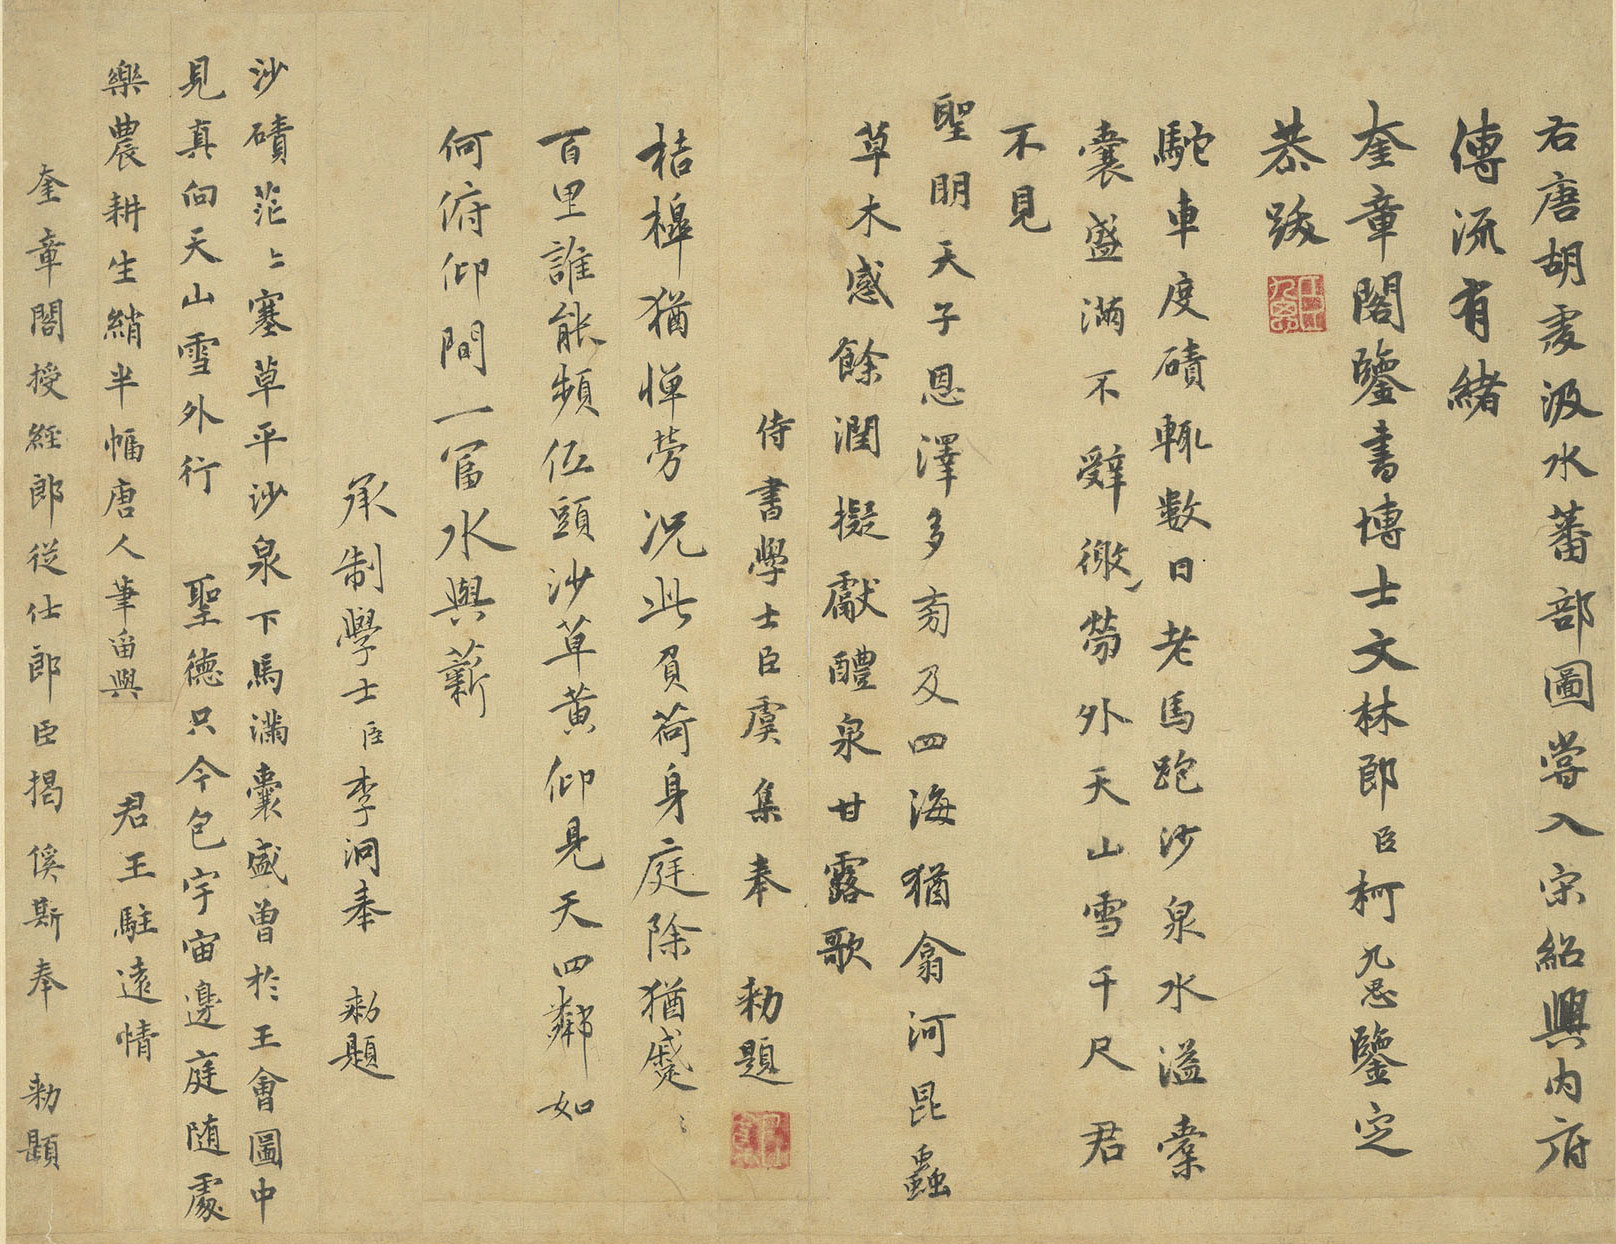 右唐胡虔汲水蕃部圖嘗入宋紹興內府
傳流有緒
奎章閣鑒書博士文林郎臣柯九思鑒定
恭跋
駝車度磧輒數日老馬跑沙泉水溢橐
囊盛滿不辭徼勞外天山雪千尺君
不見
聖明天子恩澤多旁及四海猶翕河昆蟲
草木感餘潤擬獻醴泉甘露歌
侍書學士臣虞集奉勑題
桔槔猶憚勞況此負荷身庭除猶蹙〻
百里誰能頻伍頭沙草黃仰見天四鄰如
何俯仰間一富水與薪
承制學士臣李泂奉勑題
沙磧茫〻塞草平沙泉下馬滿囊盛曾於王會圖中
見真向天山雪外行聖德只今包宇宙邊庭隨處
樂農耕生綃半幅唐人筆留與君王駐遠情
奎章閣授經郎從仕郎臣揭傒斯奉勑題